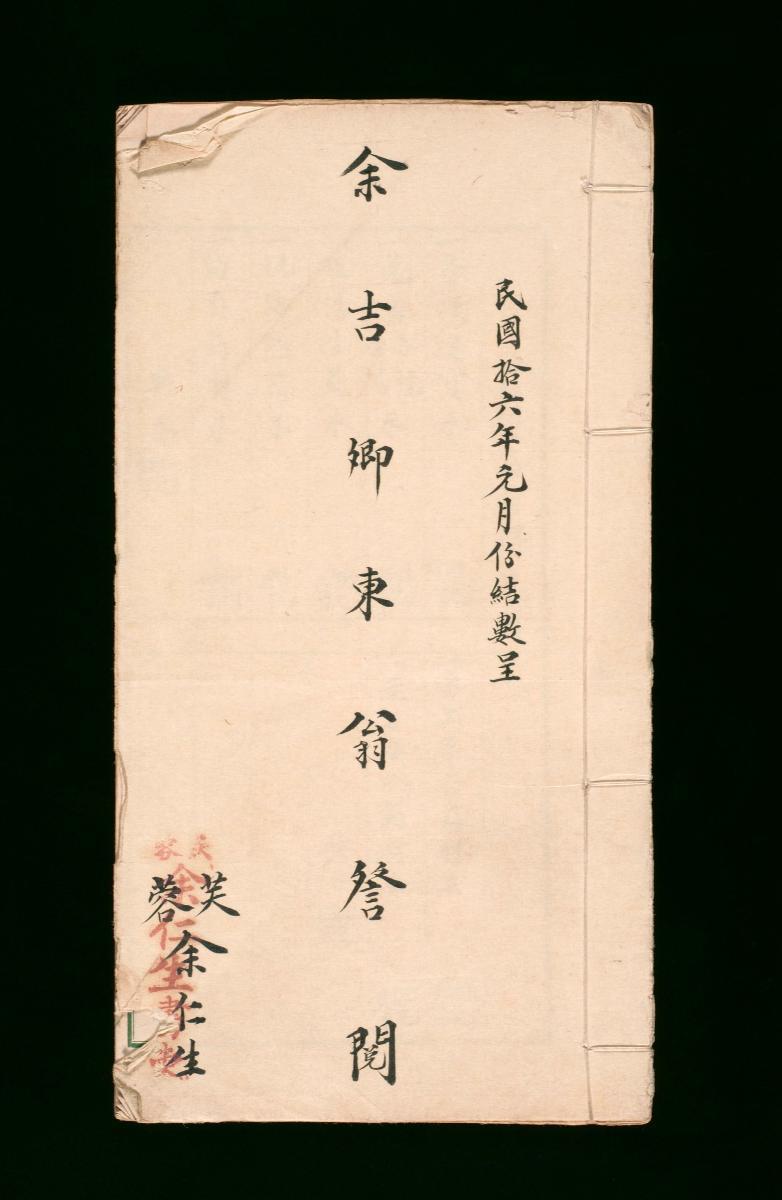 民國拾六年元月份結數呈
余吉卿東翁詧閱
芙蓉余仁生
芙蓉
余仁生書柬